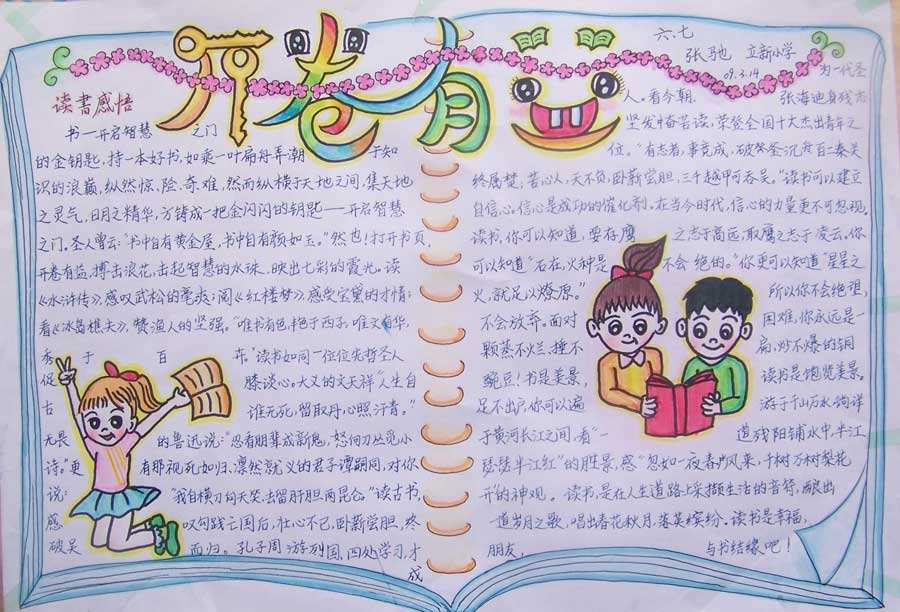 开卷有益
六.七
张驰 立新小学
09.3.14
读书感悟
书一开启智慧 之门
的金钥匙,持一本好书,如乘一叶扁舟弄潮 于知
识的浪巅,纵然惊、险、奇、难,然而纵横于天地之间,集天地
之灵气,日月之精华,方铸成一把金闪闪的钥匙——开启智慧
之门。圣人曾云:“书中自有黄金屋,书中自有颜如玉。”然也!打开书页,
开卷有益,搏击浪花,击起智慧的水珠,映出七彩的霞光。读
《水浒传》,感叹武松的豪爽;阅《红楼梦》,感受宝黛的才情;
看《冰岛樵夫》,赞渔人的坚强。“唯书有色,艳于西子;唯文有华,
秀 于 百 卉。”读书如同一位位先哲圣人
促 膝谈心。大义的文天祥“人生自
古 谁无死,留取丹心照汗青。”
无畏 的鲁迅说:“忍看朋辈成新鬼,怒向刀丛觅小
诗。”更 有那视死如归、凛然就义的君子谭嗣同,对你
说: “我自横刀向天笑,去留肝胆两昆仑。”读古书,
感 叹勾践亡国后,壮心不已,卧薪尝胆,终
破吴 而归。孔子周游列国,四处学习,才
成
为一代圣
人。看今朝, 张海迪身残志
坚发奋苦读,荣登全国十大杰出青年之
位。“有志者,事竟成,破釜沉舟百二秦关
终属楚,苦心人,天不负,卧薪尝胆,三千越甲可吞吴。”读书可以建立
自信心。信心是成功的催化剂。在当今时代,信心的力量更不可忽视。
读书,你可以知道,要存鹰 之志于高远,取鹰之志于凌云。你
可以知道“石在,火种是 不会绝的。”你更可以知道“星星之
火,就足以燎原。” 所以你不会绝望,
不会放弃。面对 困难,你永远是一
颗蒸不烂、捶不 扁、炒不爆的铜
豌豆!书是美景, 读书是饱览美景。
足不出户,你可以遍 游于千山万水,徜徉
于黄河长江之间,看“一 道残阳铺水中,半江
瑟瑟半江红”的胜景,感“忽如一夜春风来,千树万树梨花
开”的神观。读书,是在人生道路上采撷生活的音符,
一道岁月之歌,唱出春花秋月,落英缤纷。读书是幸福,
朋友, 与书结缘吧!